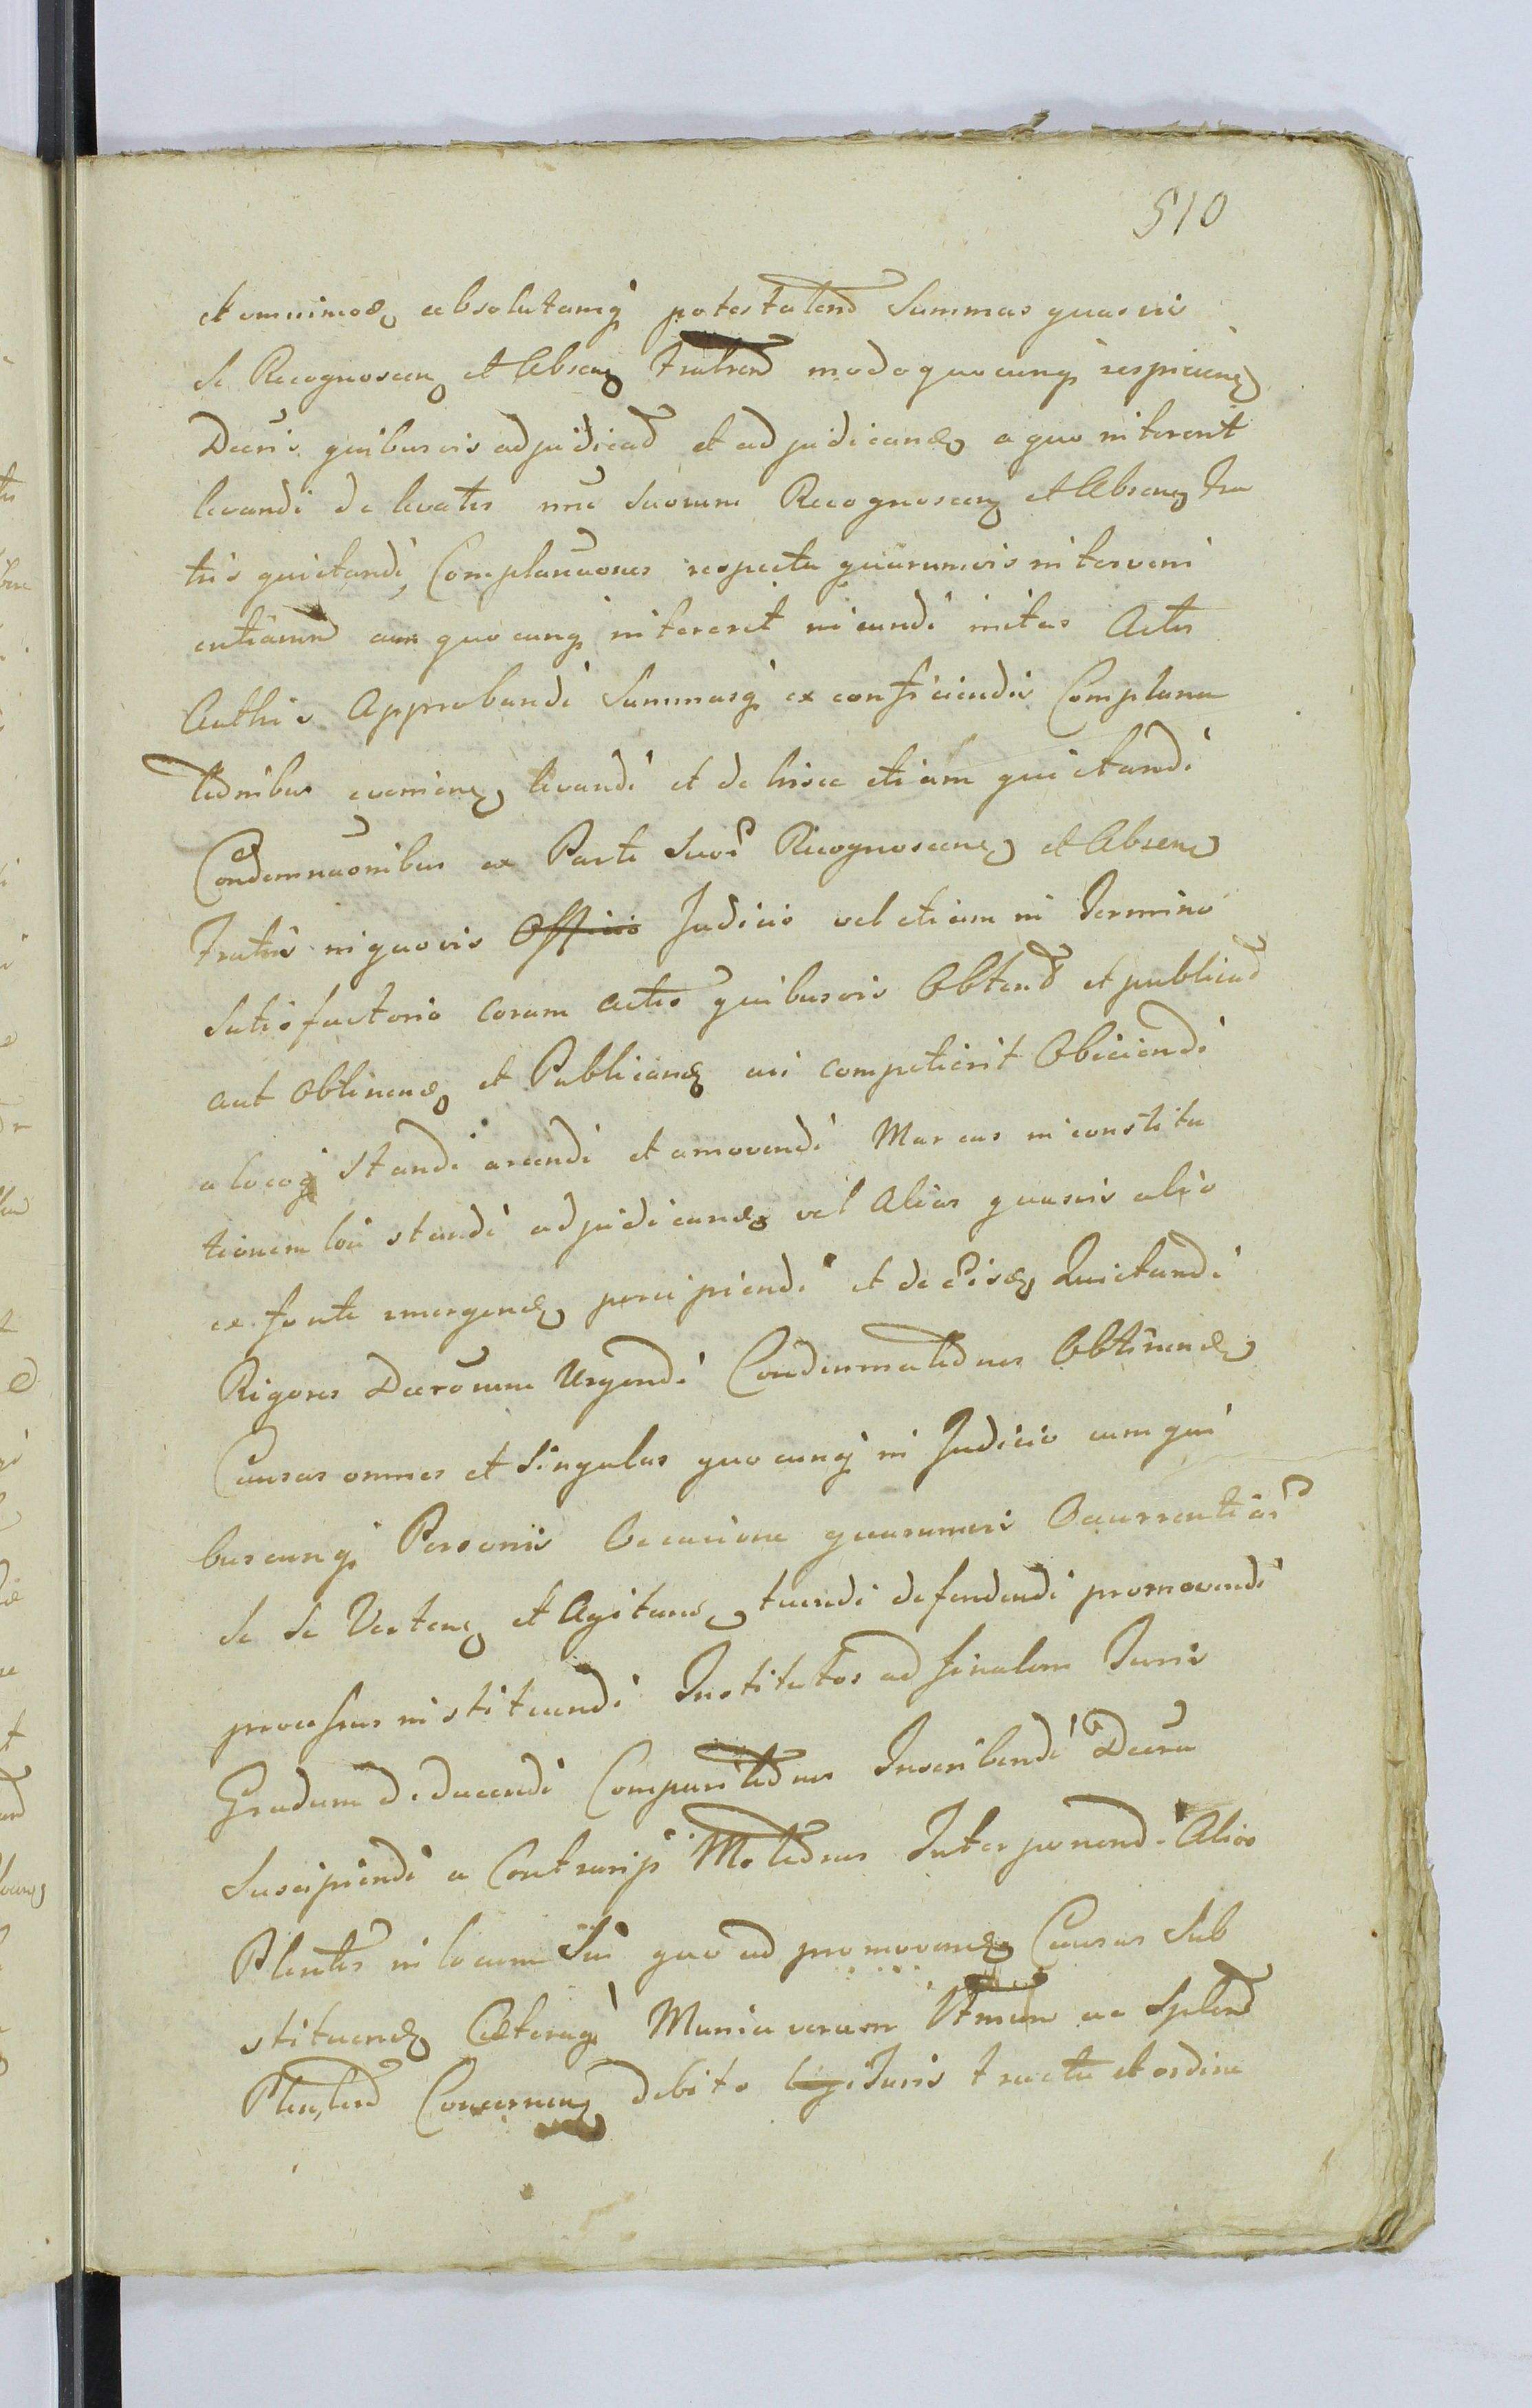 510
et omnimod absolutamq potestatem Summas quasvis
Se Recognoscen et Absen Fratrem modoquocunq respicien
Decris quibusvis adjudicat et adjudicand a quo intererit
levandi de levatis nne Suorum Recognoscen et Absen Fra
tris quietandi, Complanaones respectu quarumvis interveni
entiarum cum quocunq intererit ineundi initas Actis
Authcis Approbandi Summasq ex conficiendis Complana
tionibus evenien levandi et de hisce etiam quietandi
Condemnaonibus ex Parte Suor Recognoscen et Absen
Fratris in quovis Officio Judicio vel etiam in Termino
Satisfactorio coram actis quibusvis Obtent et publicat
aut Obtinend et Publicand cui competierit Obiiciendi
a locoq Standi arcendi et amovendi Marcas in constitu
tionem loci standi adjudicand vel Alias quasvis alio
ex fonte emergend percipiendi et de Eisd Quietandi
Rigores Decrorum Urgendi Condemnationes Obtinend
Causas omnes et Singulas quocunq in Judicio cum qui
buscunq Personis Occasione quarumvis Occurrentiar
Se Se Verten et Agitand tuendi defendendi promovendi
processus instituendi Institutos ad finalem Juris
Gradum deducendi Comparitiones Inscribendi Decra
Suscipiendi a Contrarijs Motiones Interponendi Alios
Plentes in locum Sui quo ad promovend Causas Sub
stituend Caeteraq Munia verum Vtmum ac Splem
Plentem Concernen debito Juris tractu et ordine